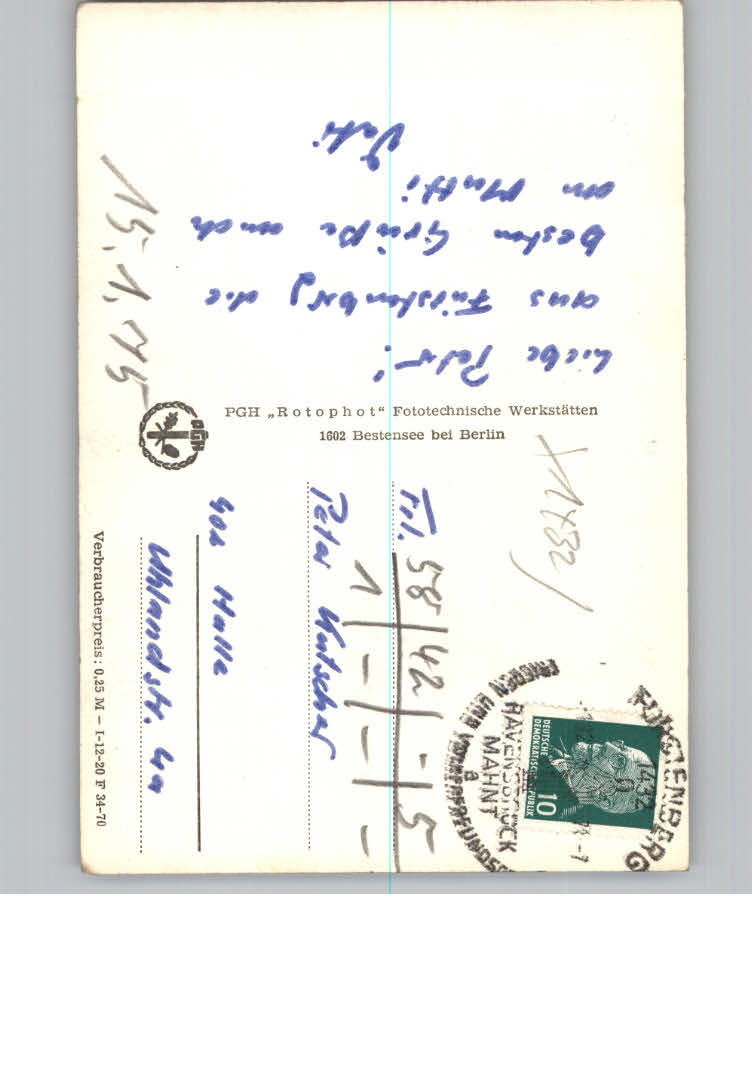 Liebe Peter!
aus Fürstenberg die
besten Grüße auch
an Mutti
Vati
15.1.75
PGH „Rotophot“ Fototechnische Werkstätten
1602 Bestensee bei Berlin
PGH
1432
FÜRSTENBERG
1432
RAVENSBRÜCK
MAHNT
a
DEUTSCHE
DEMOKRATISCHE REPUBLIK
10
58/42/-15
1/-/-/-
Peter Kutscher
402 Halle
Uhlandstr. 4a
Verbraucherpreis: 0,25 M — I-12-20 F 34-70